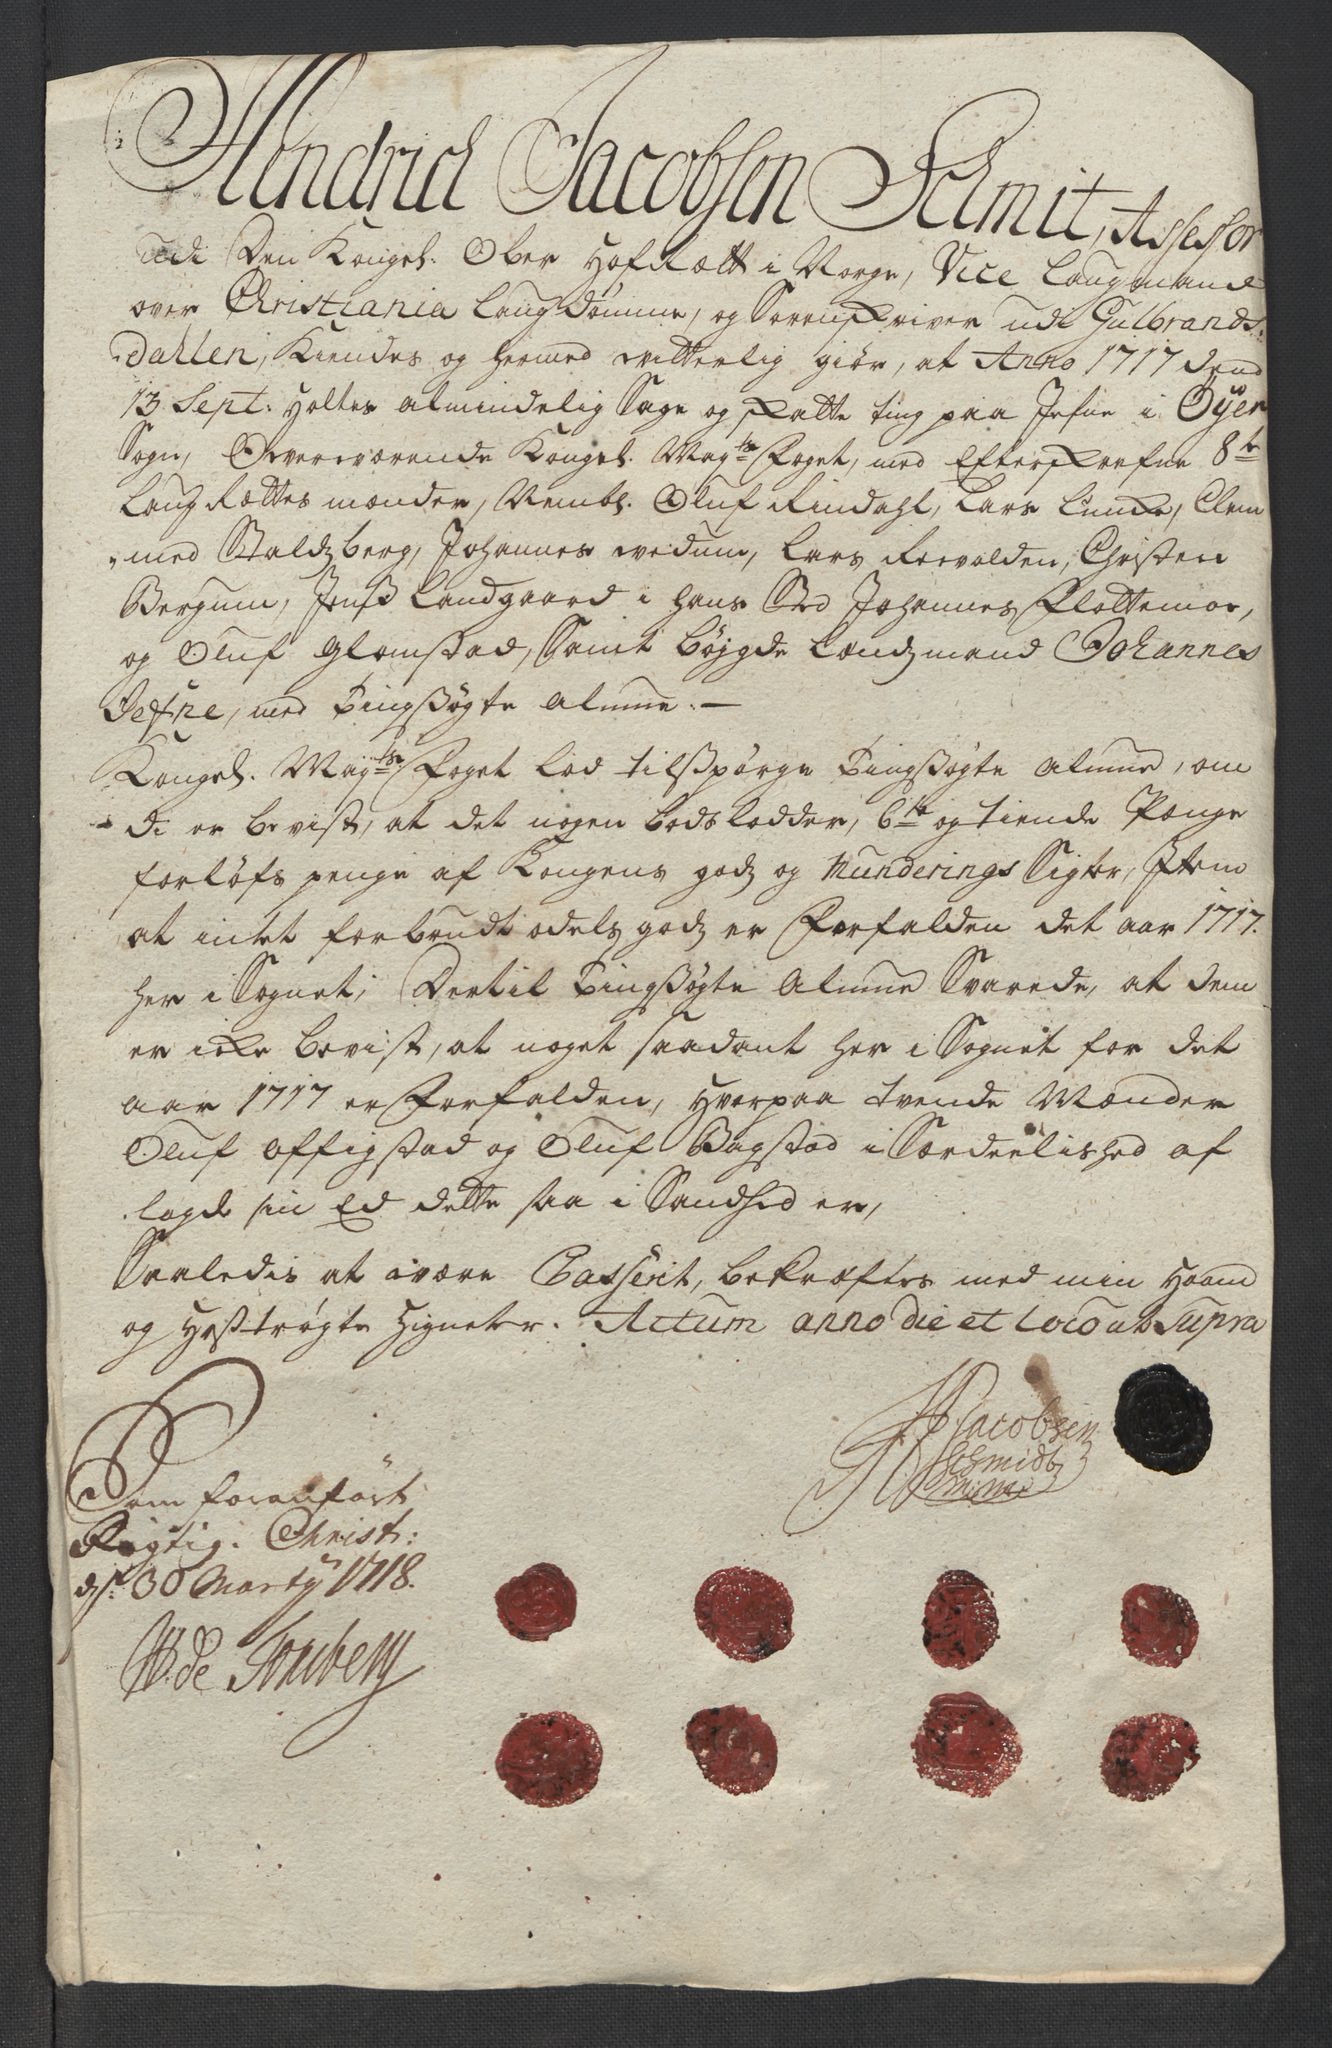 Hendrich Jacobsen Schmit, Assessor
udi Den Kongel. Ober HofRætt i Norge, Vice Laugmand
over Christiania Laugdømme, og Sorenskriver udi Gulbrands-
Dahlen, Kiendes og hermed vitterlig giør, at Anno 1717 dend
13 Sept. Holtes almindelig Sage og skatte ting paa Jefne i Öÿer
Sogn, Overværende Kongel. Mayts Foget, med Efterskrefne 8te
LaugRættesmænder, Nembl. Oluf Rindahl, Lars Lunde, Clem
med Staldzberg, Johannes Wedum, Lars Roevolden, Christen
Bergum, Jens Landgaard i hans Sted Johannes Slottemoe,
og Oluf Glomstad, Samt bøjgde Lændzmand Johannes
Jefne, med Tingsøgte Almue. —
Kongel. Mayts Foget lod tilspørge Tingsøgte Almue, om
de er bevist, at det nogen bødslodder, 6te og tiende Penge
forløfs penge af Kongens godz og Munderings Sigter, Item
at intet forbrudt odels godz er Forfalden det aar 1717.
her i Sognet; Dertil Tingsøgte Almue Svarede, at dem
er icke bevist, at noget saadant her i Sognet for det
aar 1717 er Forfalden, Hvorpaa tvende Mænder
Oluf Offigstad og Oluf Bagstad i Særdeelished af
lagde sin Ed dette saa i Sandhed er,
Saaledis at være Passerit, bekræftes med min Haand
og Hostrøgte Zigneter. Actum anno die et loco ut Supra
HJacobsen
Schmidt
Som foranført
Rigtig. Christ:
ds. 30 Marty 1718.
W. de Tonsberg